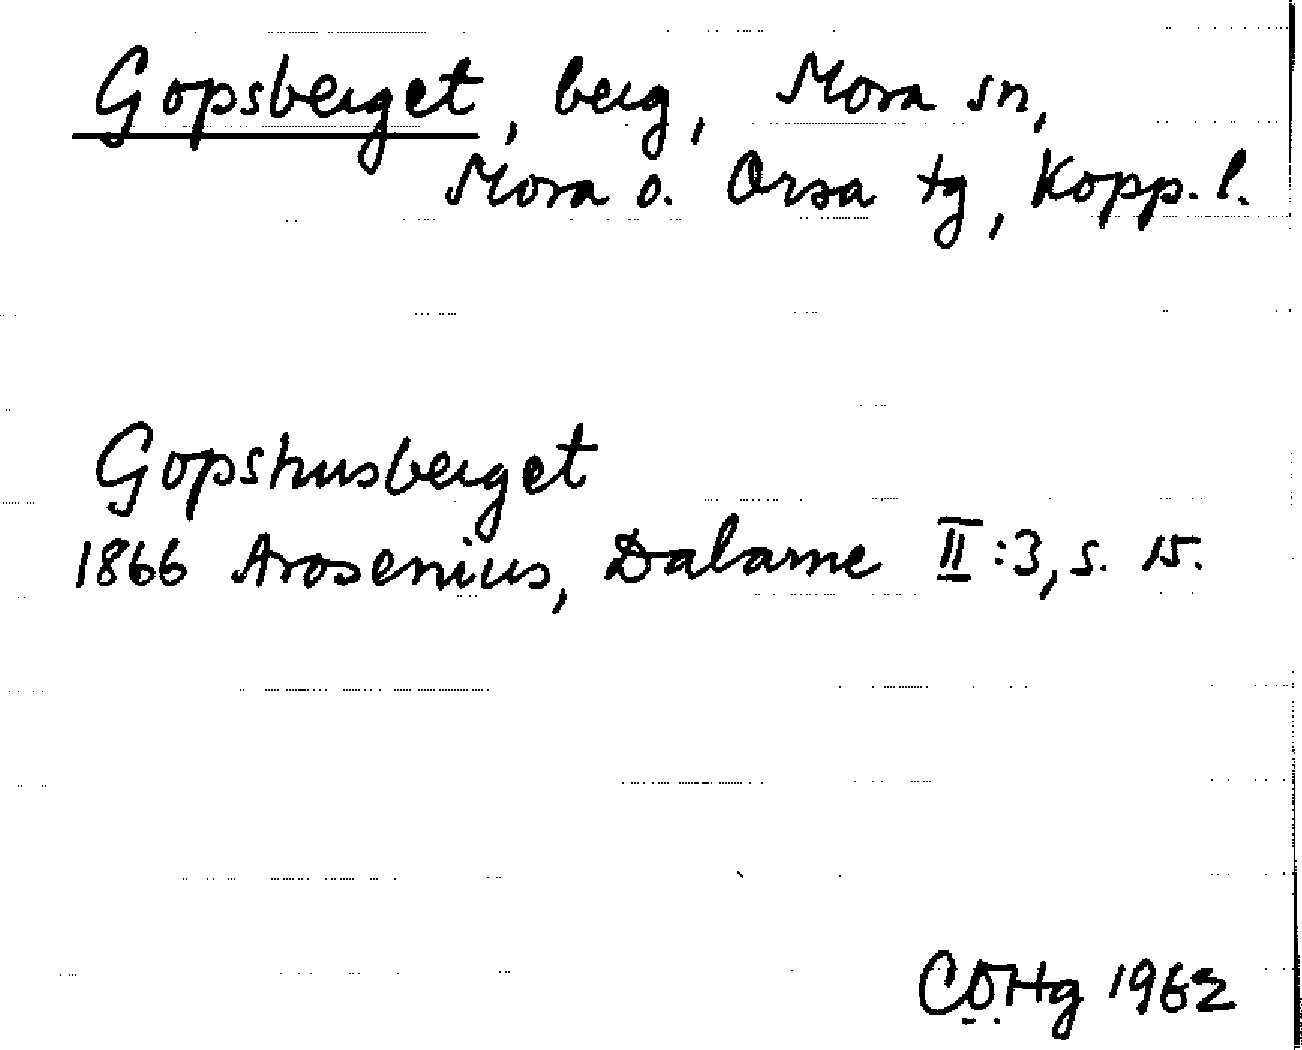 Gopsberget, berg, Mora sn,
Mora o. Orsa tg, Kopp. l.
Gopshusberget
1866 Arosenius, Dalarne II:3, s. 15.
COHg 1962